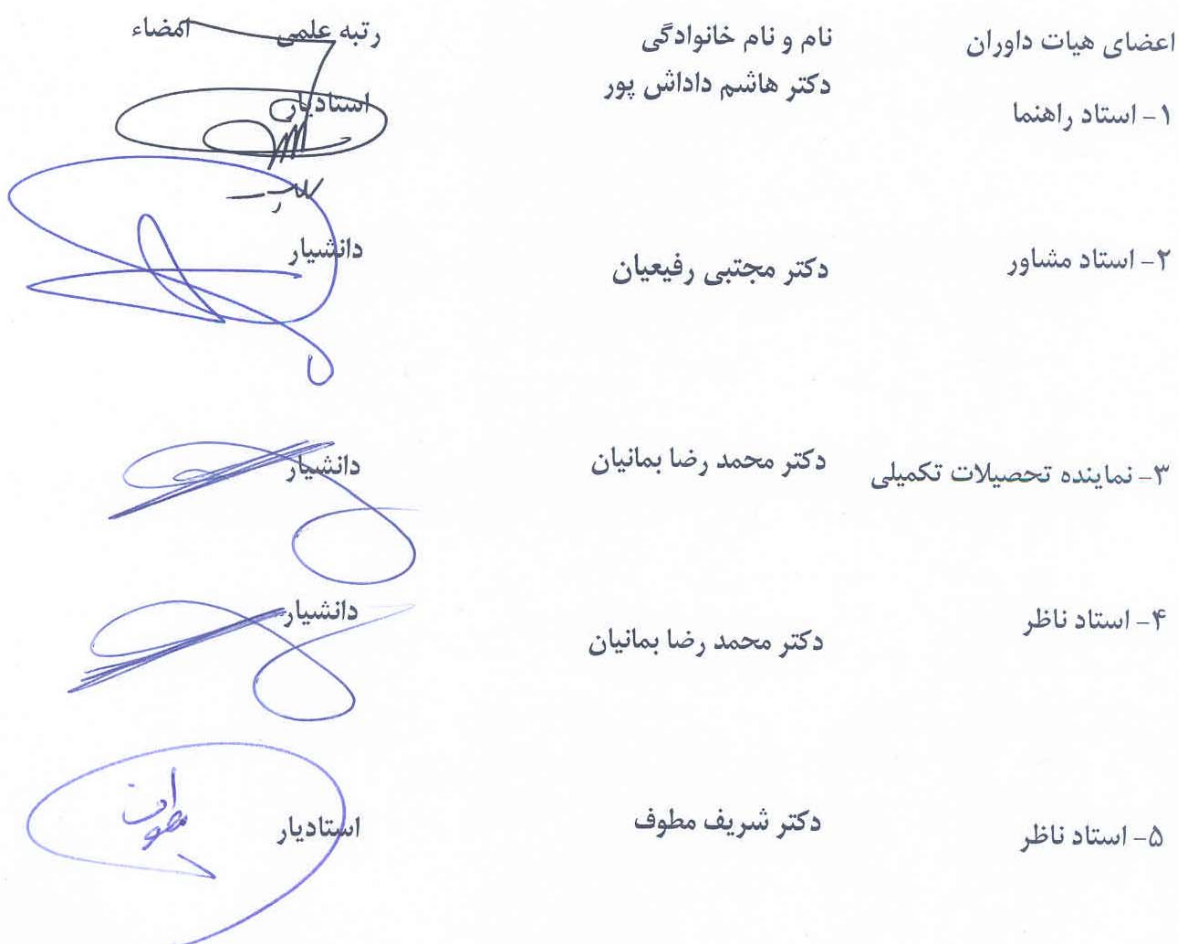 اعضای هیات داوران نام و نام خانوادگی رتبه علمی امضاء
۱- استاد راهنما دکتر هاشم داداش پور استادیار
۲- استاد مشاور دکتر مجتبی رفیعیان دانشیار
۳- نماینده تحصیلات تکمیلی دکتر محمد رضا بمانیان دانشیار
۴- استاد ناظر دکتر محمد رضا بمانیان دانشیار
۵- استاد ناظر دکتر شریف مطوف استادیار